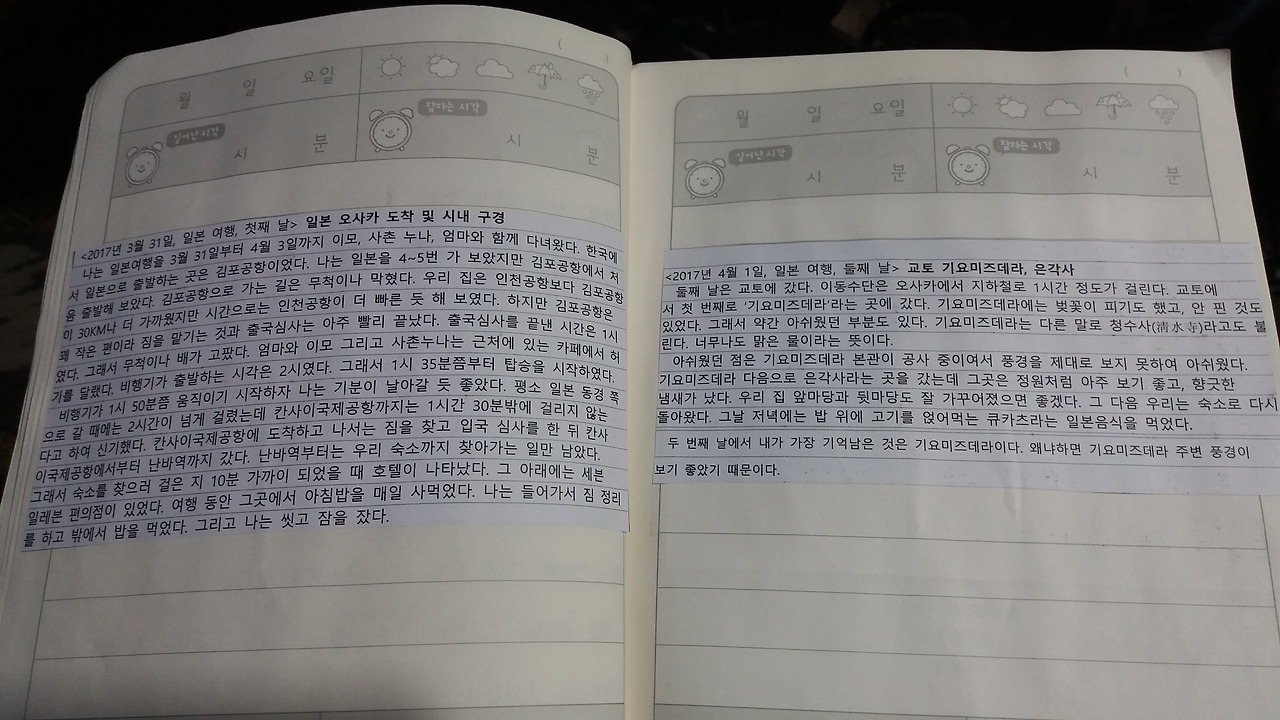 ( )
월 일 요일
일어난 시각 시 분
잠자는 시각 시 분
<2017년 3월 31일, 일본 여행, 첫째 날> 일본 오사카 도착 및 시내 구경
나는 일본여행을 3월 31일부터 4월 3일까지 이모, 사촌 누나, 엄마와 함께 다녀왔다. 한국에
서 일본으로 출발하는 곳은 김포공항이었다. 나는 일본을 4~5번 가 보았지만 김포공항에서 처
음 출발해 보았다. 김포공항으로 가는 길은 무척이나 막혔다. 우리 집은 인천공항보다 김포공항
이 30KM나 더 가까웠지만 시간으로는 인천공항이 더 빠른 듯 해 보였다. 하지만 김포공항은
꽤 작은 편이라 짐을 맡기는 것과 출국심사는 아주 빨리 끝났다. 출국심사를 끝낸 시간은 1시
였다. 그래서 무척이나 배가 고팠다. 엄마와 이모 그리고 사촌누나는 근처에 있는 카페에서 허
기를 달랬다. 비행기가 출발하는 시각은 2시였다. 그래서 1시 35분쯤부터 탑승을 시작하였다.
비행기가 1시 50분쯤 움직이기 시작하자 나는 기분이 날아갈 듯 좋았다. 평소 일본 동경 쪽
으로 갈 때에는 2시간이 넘게 걸렸는데 칸사이국제공항까지는 1시간 30분밖에 걸리지 않는
다고 하여 신기했다. 칸사이국제공항에 도착하고 나서는 짐을 찾고 입국 심사를 한 뒤 칸사
이국제공항에서부터 난바역까지 갔다. 난바역부터는 우리 숙소까지 찾아가는 일만 남았다.
그래서 숙소를 찾으러 걸은 지 10분 가까이 되었을 때 호텔이 나타났다. 그 아래에는 세븐
일레븐 편의점이 있었다. 여행 동안 그곳에서 아침밥을 매일 사먹었다. 나는 들어가서 짐 정리
를 하고 밖에서 밥을 먹었다. 그리고 나는 씻고 잠을 잤다.
( )
월 일 요일
일어난 시각 시 분
잠자는 시각 시 분
<2017년 4월 1일, 일본 여행, 둘째 날> 교토 기요미즈데라, 은각사
둘째 날은 교토에 갔다. 이동수단은 오사카에서 지하철로 1시간 정도가 걸린다. 교토에
서 첫 번째로 '기요미즈데라'라는 곳에 갔다. 기요미즈데라에는 벚꽃이 피기도 했고, 안 핀 것도
있었다. 그래서 약간 아쉬웠던 부분도 있다. 기요미즈데라는 다른 말로 청수사(清水寺)라고도 불
린다. 너무나도 맑은 물이라는 뜻이다.
아쉬웠던 점은 기요미즈데라 본관이 공사 중이여서 풍경을 제대로 보지 못하여 아쉬웠다.
기요미즈데라 다음으로 은각사라는 곳을 갔는데 그곳은 정원처럼 아주 보기 좋고, 향긋한
냄새가 났다. 우리 집 앞마당과 뒷마당도 잘 가꾸어졌으면 좋겠다. 그 다음 우리는 숙소로 다시
돌아왔다. 그날 저녁에는 밥 위에 고기를 얹어먹는 큐카츠라는 일본음식을 먹었다.
두 번째 날에서 내가 가장 기억남은 것은 기요미즈데라이다. 왜냐하면 기요미즈데라 주변 풍경이
보기 좋았기 때문이다.